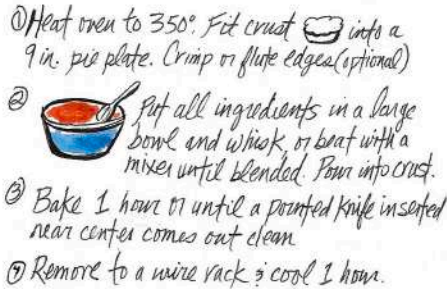 ① Heat oven to 350°. Fit crust into a
9 in. pie plate. Crimp or flute edges (optional)
② Put all ingredients in a large
bowl and whisk, or beat with a
mixer until blended. Pour into crust.
③ Bake 1 hour or until a pointed knife inserted
near center comes out clean
④ Remove to a wire rack & cool 1 hour.